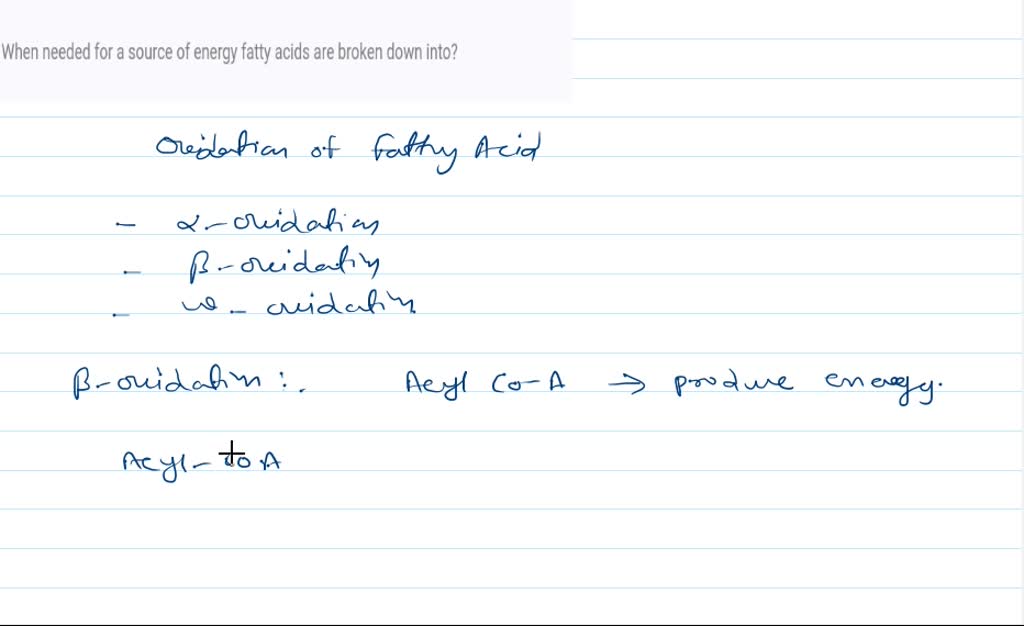 When needed for a source of energy fatty acids are broken down into?
Oxidation of Fatty Acid
- α-oxidation
- β-oxidation
- ω-oxidation
β-oxidation:. Acyl Co-A → produce energy.
Acyl-CoA